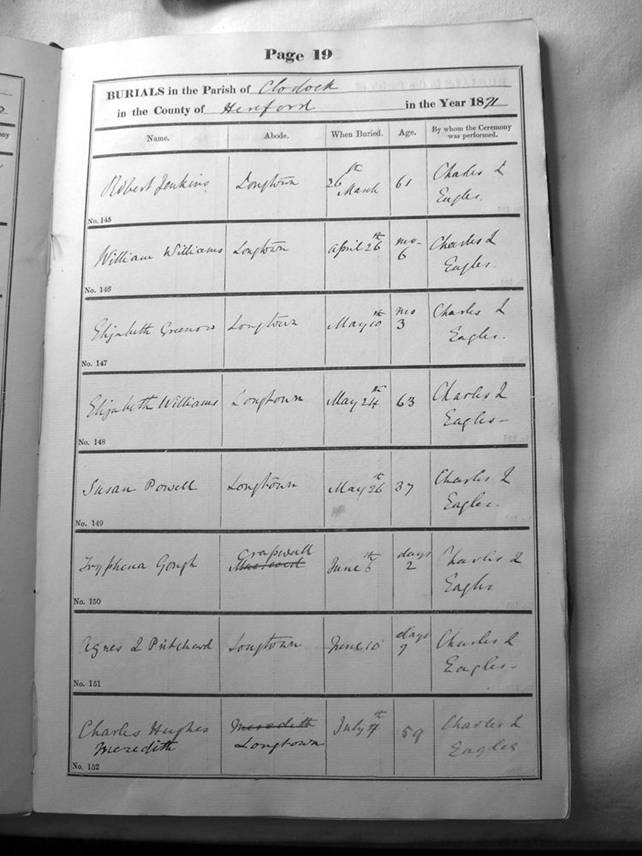 Page 19
BURIALS in the Parish of Clodock
in the County of Hereford in the Year 1871
Name. Abode. When Buried. Age. By whom the Ceremony was performed.
Robert Jenkins Longtown 26th March 61 Charles L Eagles.
No. 145
William Williams Longtown April 26th mo- 6 Charles L Eagles.
No. 146
Elizabeth Greenow Longtown May 10th mo 3 Charles L Eagles.
No. 147
Elizabeth Williams Longtown May 24th 63 Charles L Eagles-
No. 148
Susan Powell Longtown May 26th 37 Charles L Eagles.
No. 149
Tryphena Gough Craswall June 6th days 2 Charles L Eagles
No. 150
Agnes L Pritchard Longtown June 10 days 7 Charles L Eagles-
No. 151
Charles Hughes Meredith Meredith Longtown July 7th 59 Charles L Eagles
No. 152